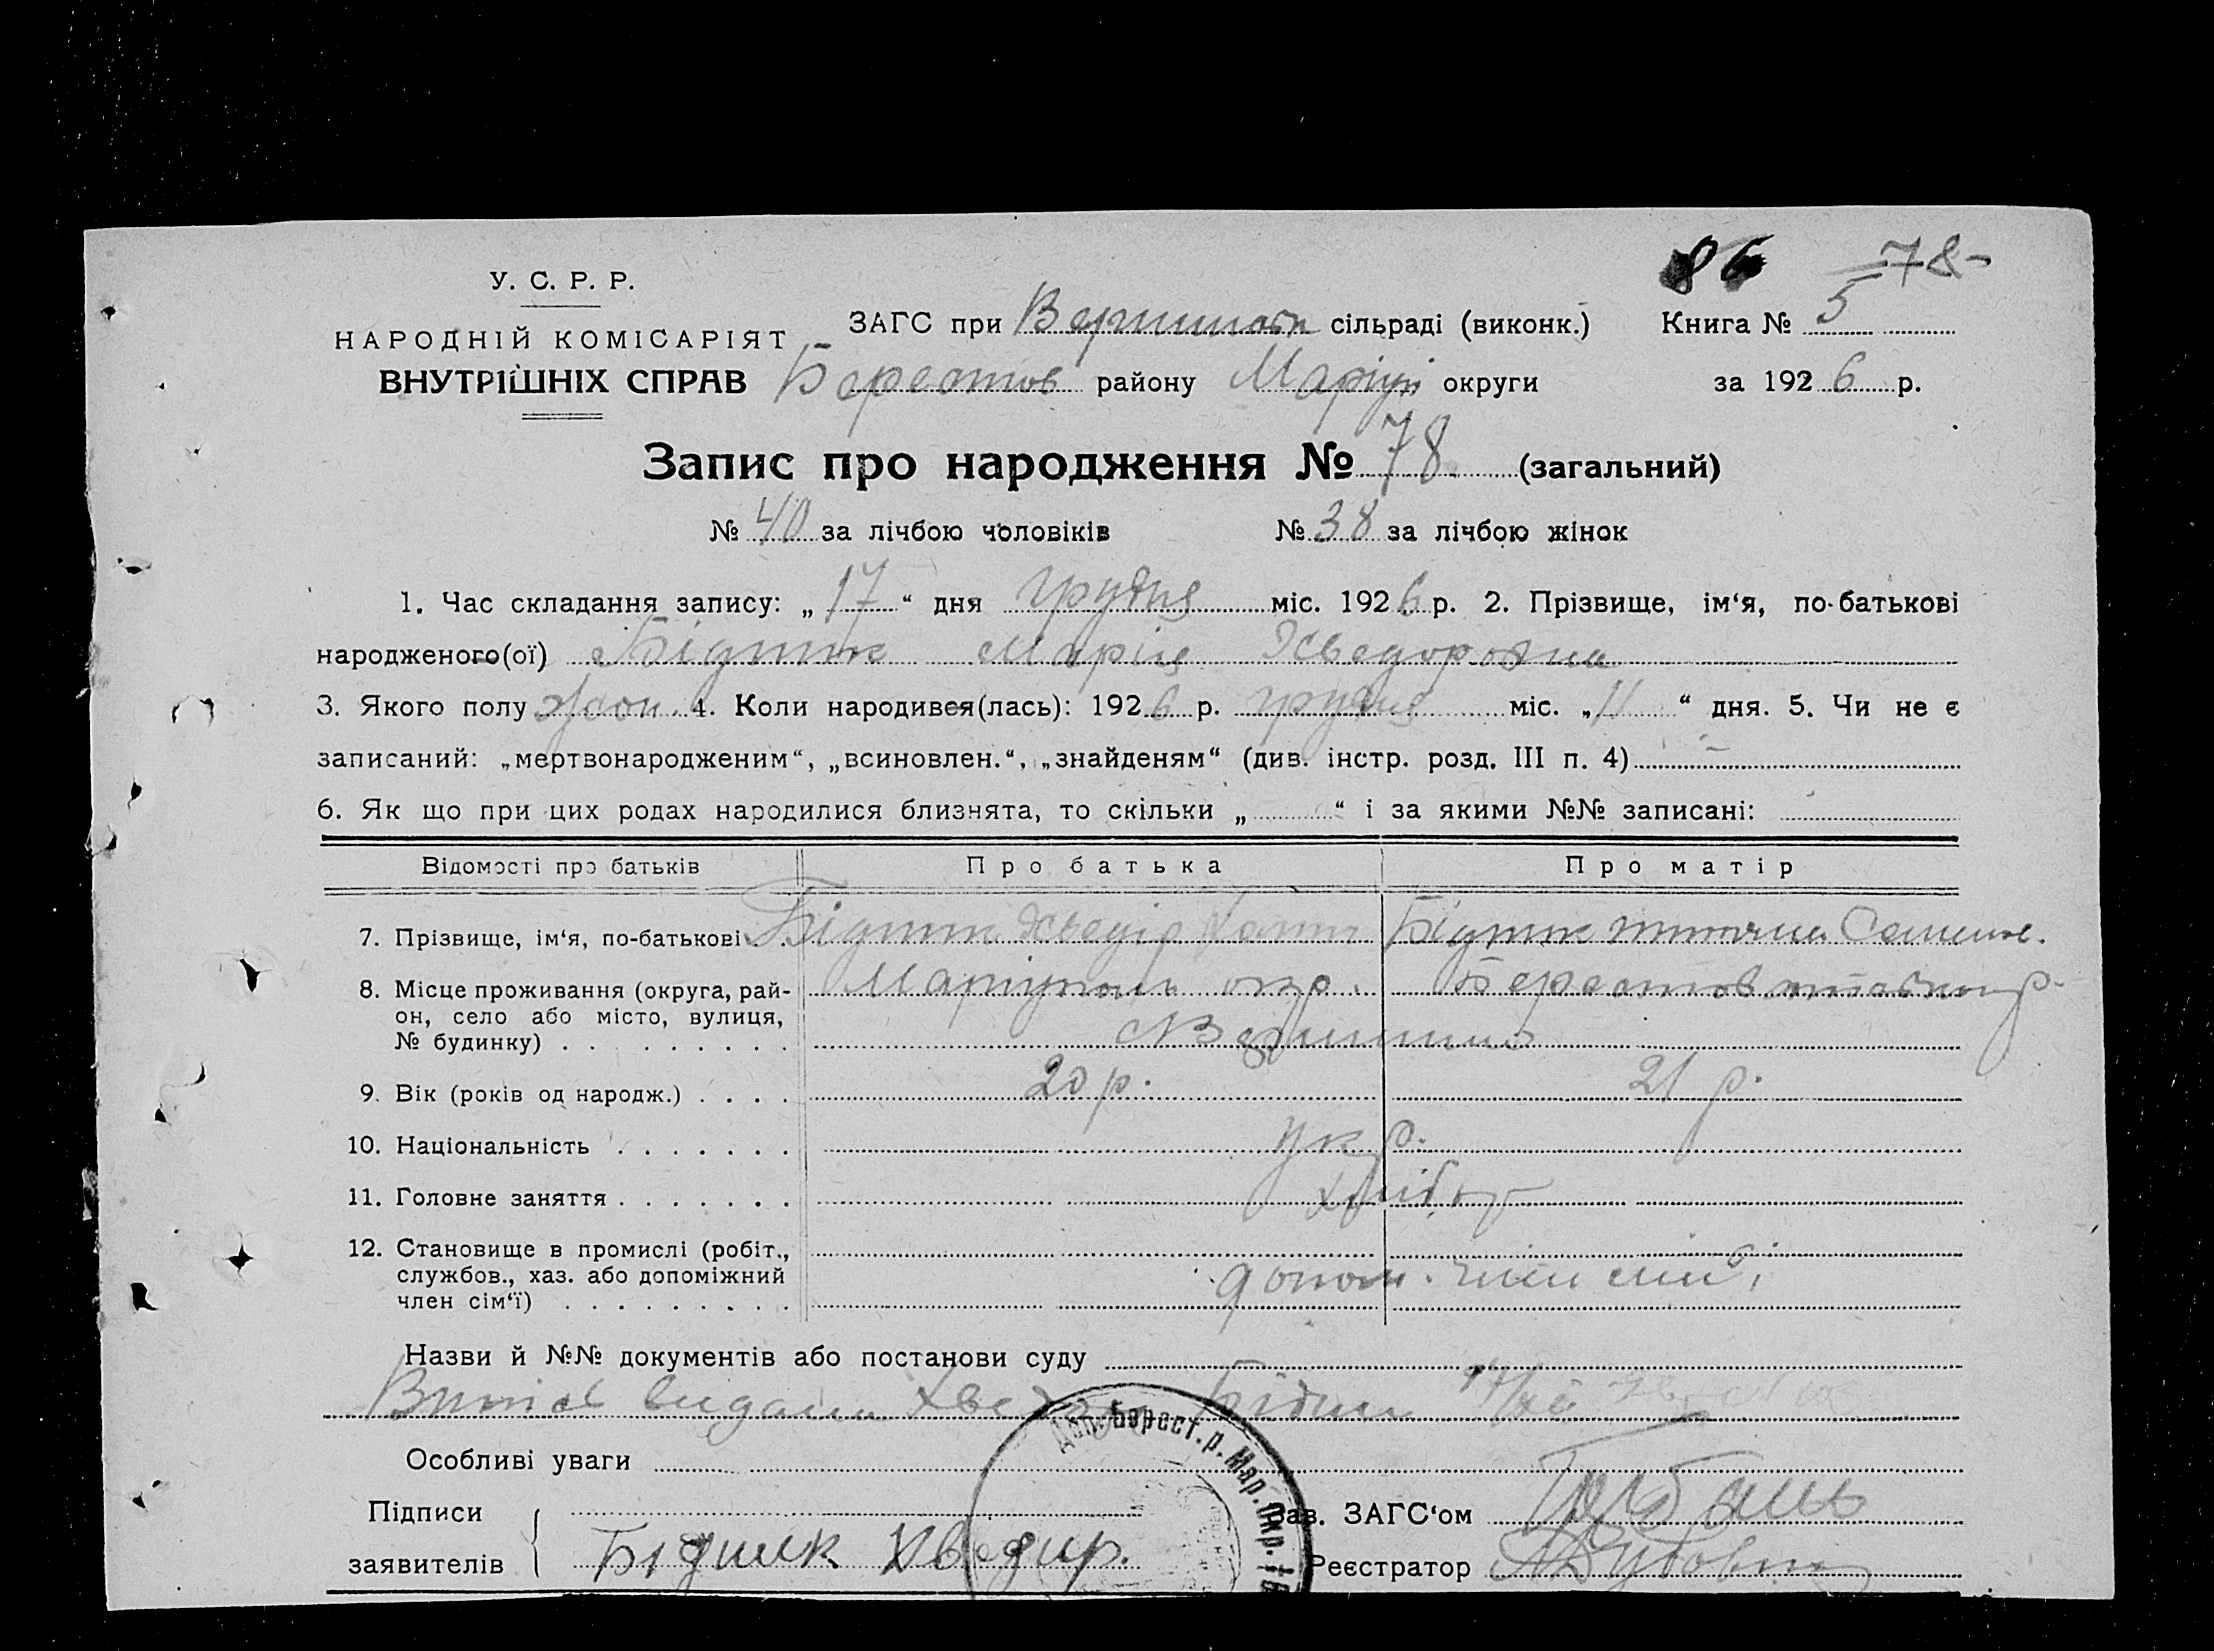 86 78-
У. С. Р. Р.
НАРОДНІЙ КОМІСАРІЯТ
ВНУТРІШНІХ СПРАВ
ЗАГС при сільраді (виконк.) Книга № 5
Берестов району Маріуп округи за 1926 р.
Запис про народження № 78 (загальний)
№ 40 за лічбою чоловіків № 38 за лічбою жінок
1. Час складання запису: „17“ дня грудня міс. 1926 р. 2. Прізвище, ім‘я, по-батькові
народженого(ої) Бідник Марія Хведоровна
3. Якого полу жон. 4. Коли народився(лась): 1926 р. грудня міс. „11“ дня. 5. Чи не є
записаний: „мертвонародженим“, „всиновлен.“, „знайденям“ (див. інстр. розд. III п. 4) –
6. Як що при цих родах народилися близнята, то скільки „ “ і за якими №№ записані:
Відомості про батьків Про батька Про матір
7. Прізвище, ім‘я, по-батькові Бідник Хведір Бідник
8. Місце проживання (округа, рай- Маріуполь окр.
он, село або місто, вулиця,
№ будинку)
9. Вік (років од народж.) 20 р. 21 р.
10. Національність укр.
11. Головне заняття хліб.
12. Становище в промислі (робіт.,
службов., хаз. або допоміжний допом. член сім‘ї
член сім‘ї)
Назви й №№ документів або постанови суду
видани
Берест. р. Мар. Окр.
Особливі уваги
Підписи Зав. ЗАГС‘ом
заявителів Бідник Хведир. Реєстратор